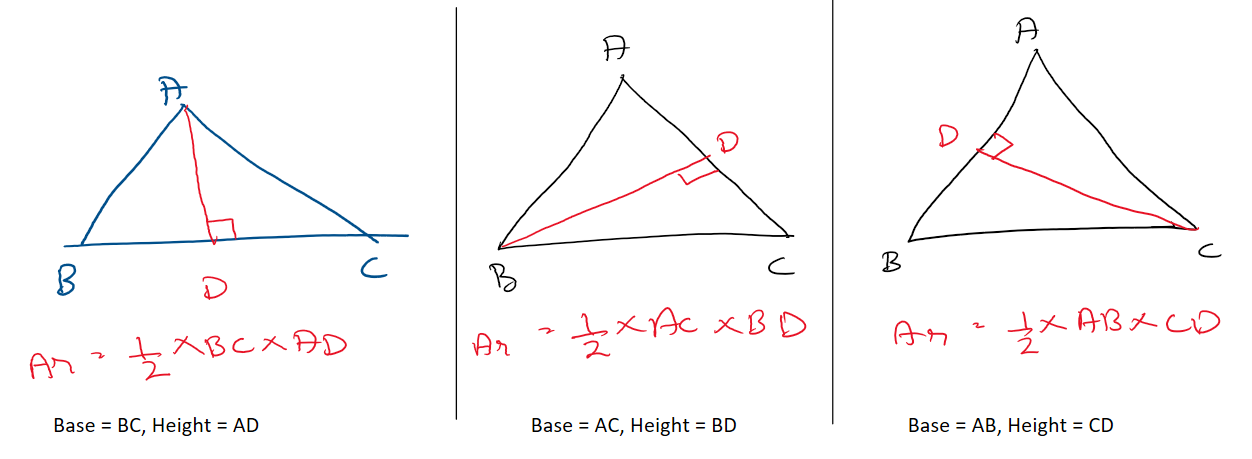 A
B
C
D
Ar = 1/2 × BC × AD
Base = BC, Height = AD
A
D
B
C
Ar = 1/2 × AC × BD
Base = AC, Height = BD
A
D
B
C
Ar = 1/2 × AB × CD
Base = AB, Height = CD